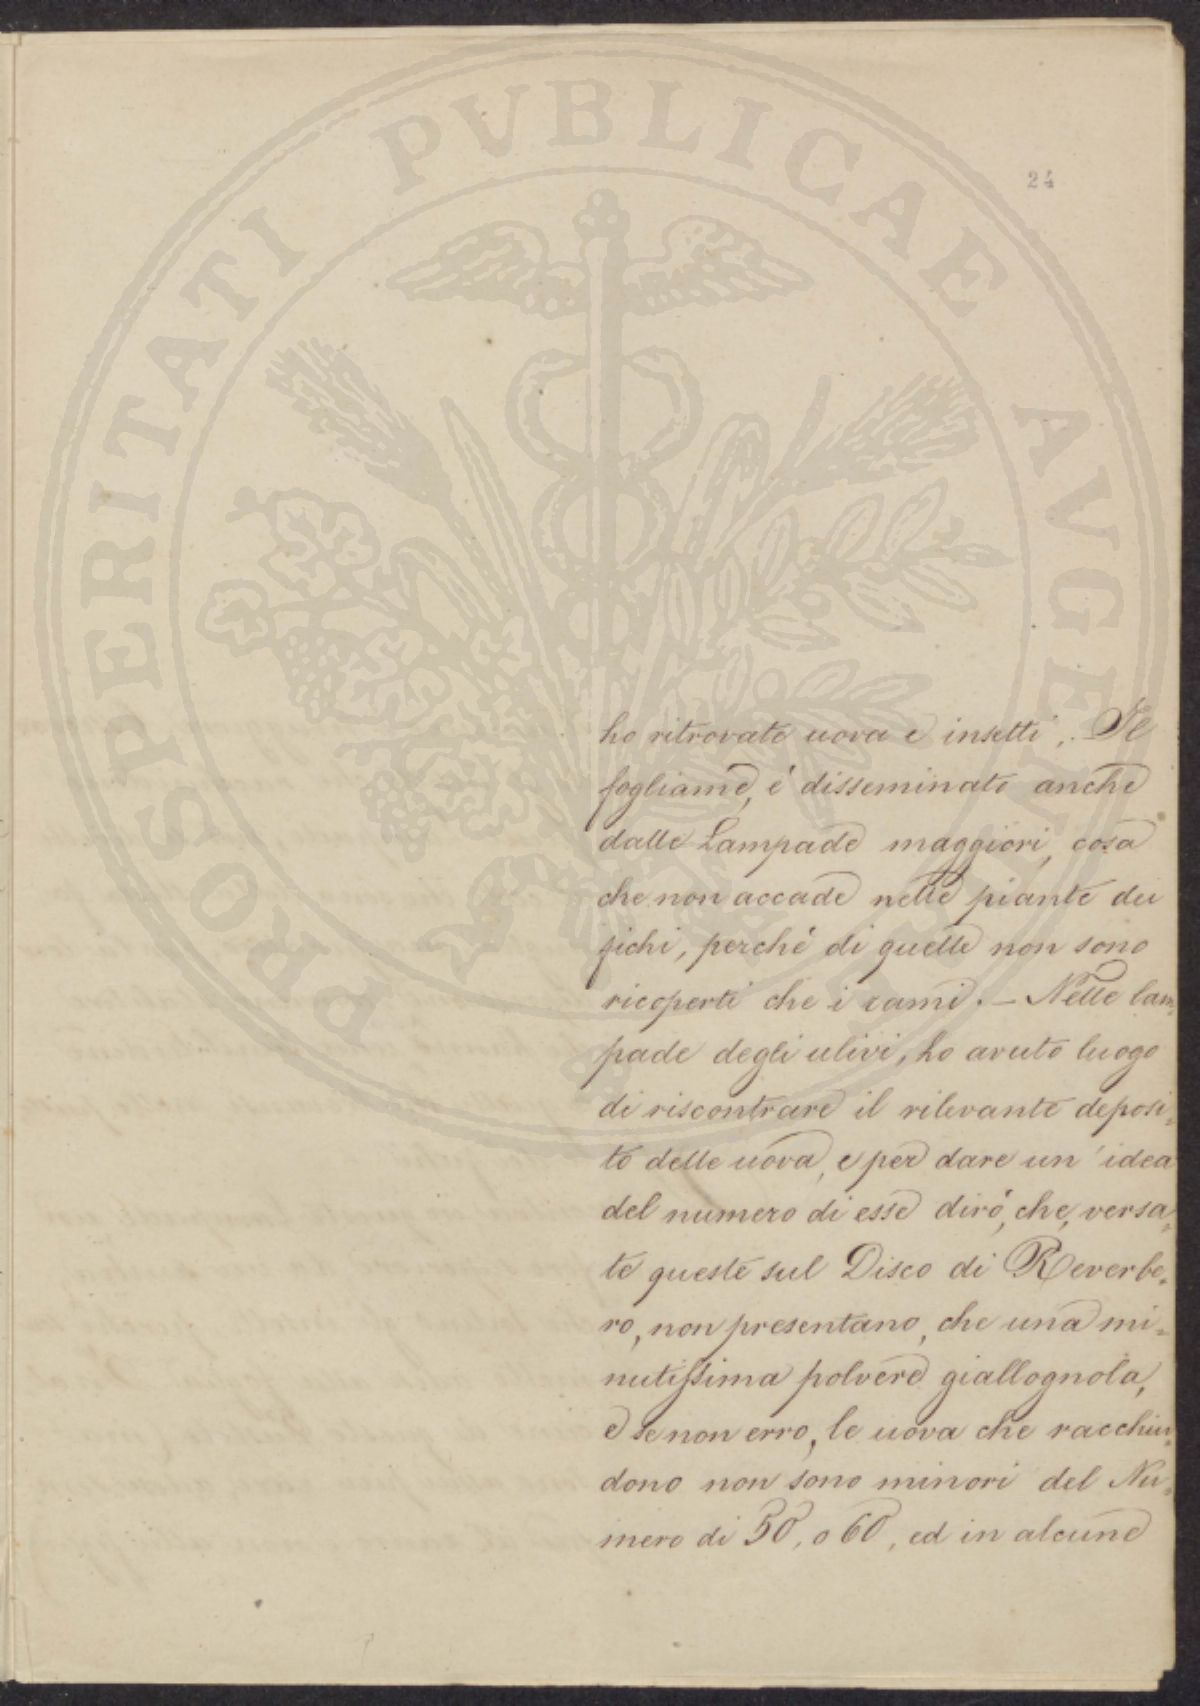 PROSPERITATI PVBLICAE AVGENDAE
24
ho ritrovato uova e insetti. Il
fogliame, é disseminato anche
dalle Lampade maggiori, cosa
che non accade nelle piante dei
fichi, perché di quelle non sono
ricoperti che i rami. — Nelle lam=
pade degli ulivi, ho avuto luogo
di riscontrare il rilevante deposi=
to delle uova, e per dare un' idea
del numero di esse dirò, che, versa=
te queste sul Disco di Reverbe=
ro, non presentano, che una mi=
nutissima polvere giallognola,
e se non erro, le uova che racchiu=
dono non sono minori del Nu=
mero di 50, o 60, ed in alcune